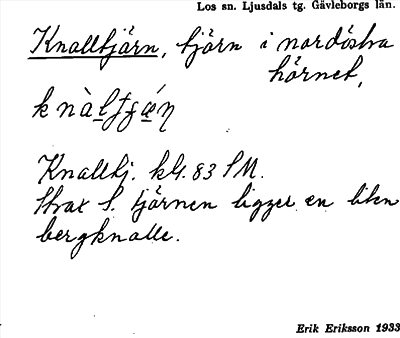 Los sn. Ljusdals tg. Gävleborgs län.
Knalltjärn, tjärn i nordöstra
hörnet,
Knalltj. kbl. 83 SM.
Strax S. tjärnen ligger en liten
bergknalle.
Erik Eriksson 1933